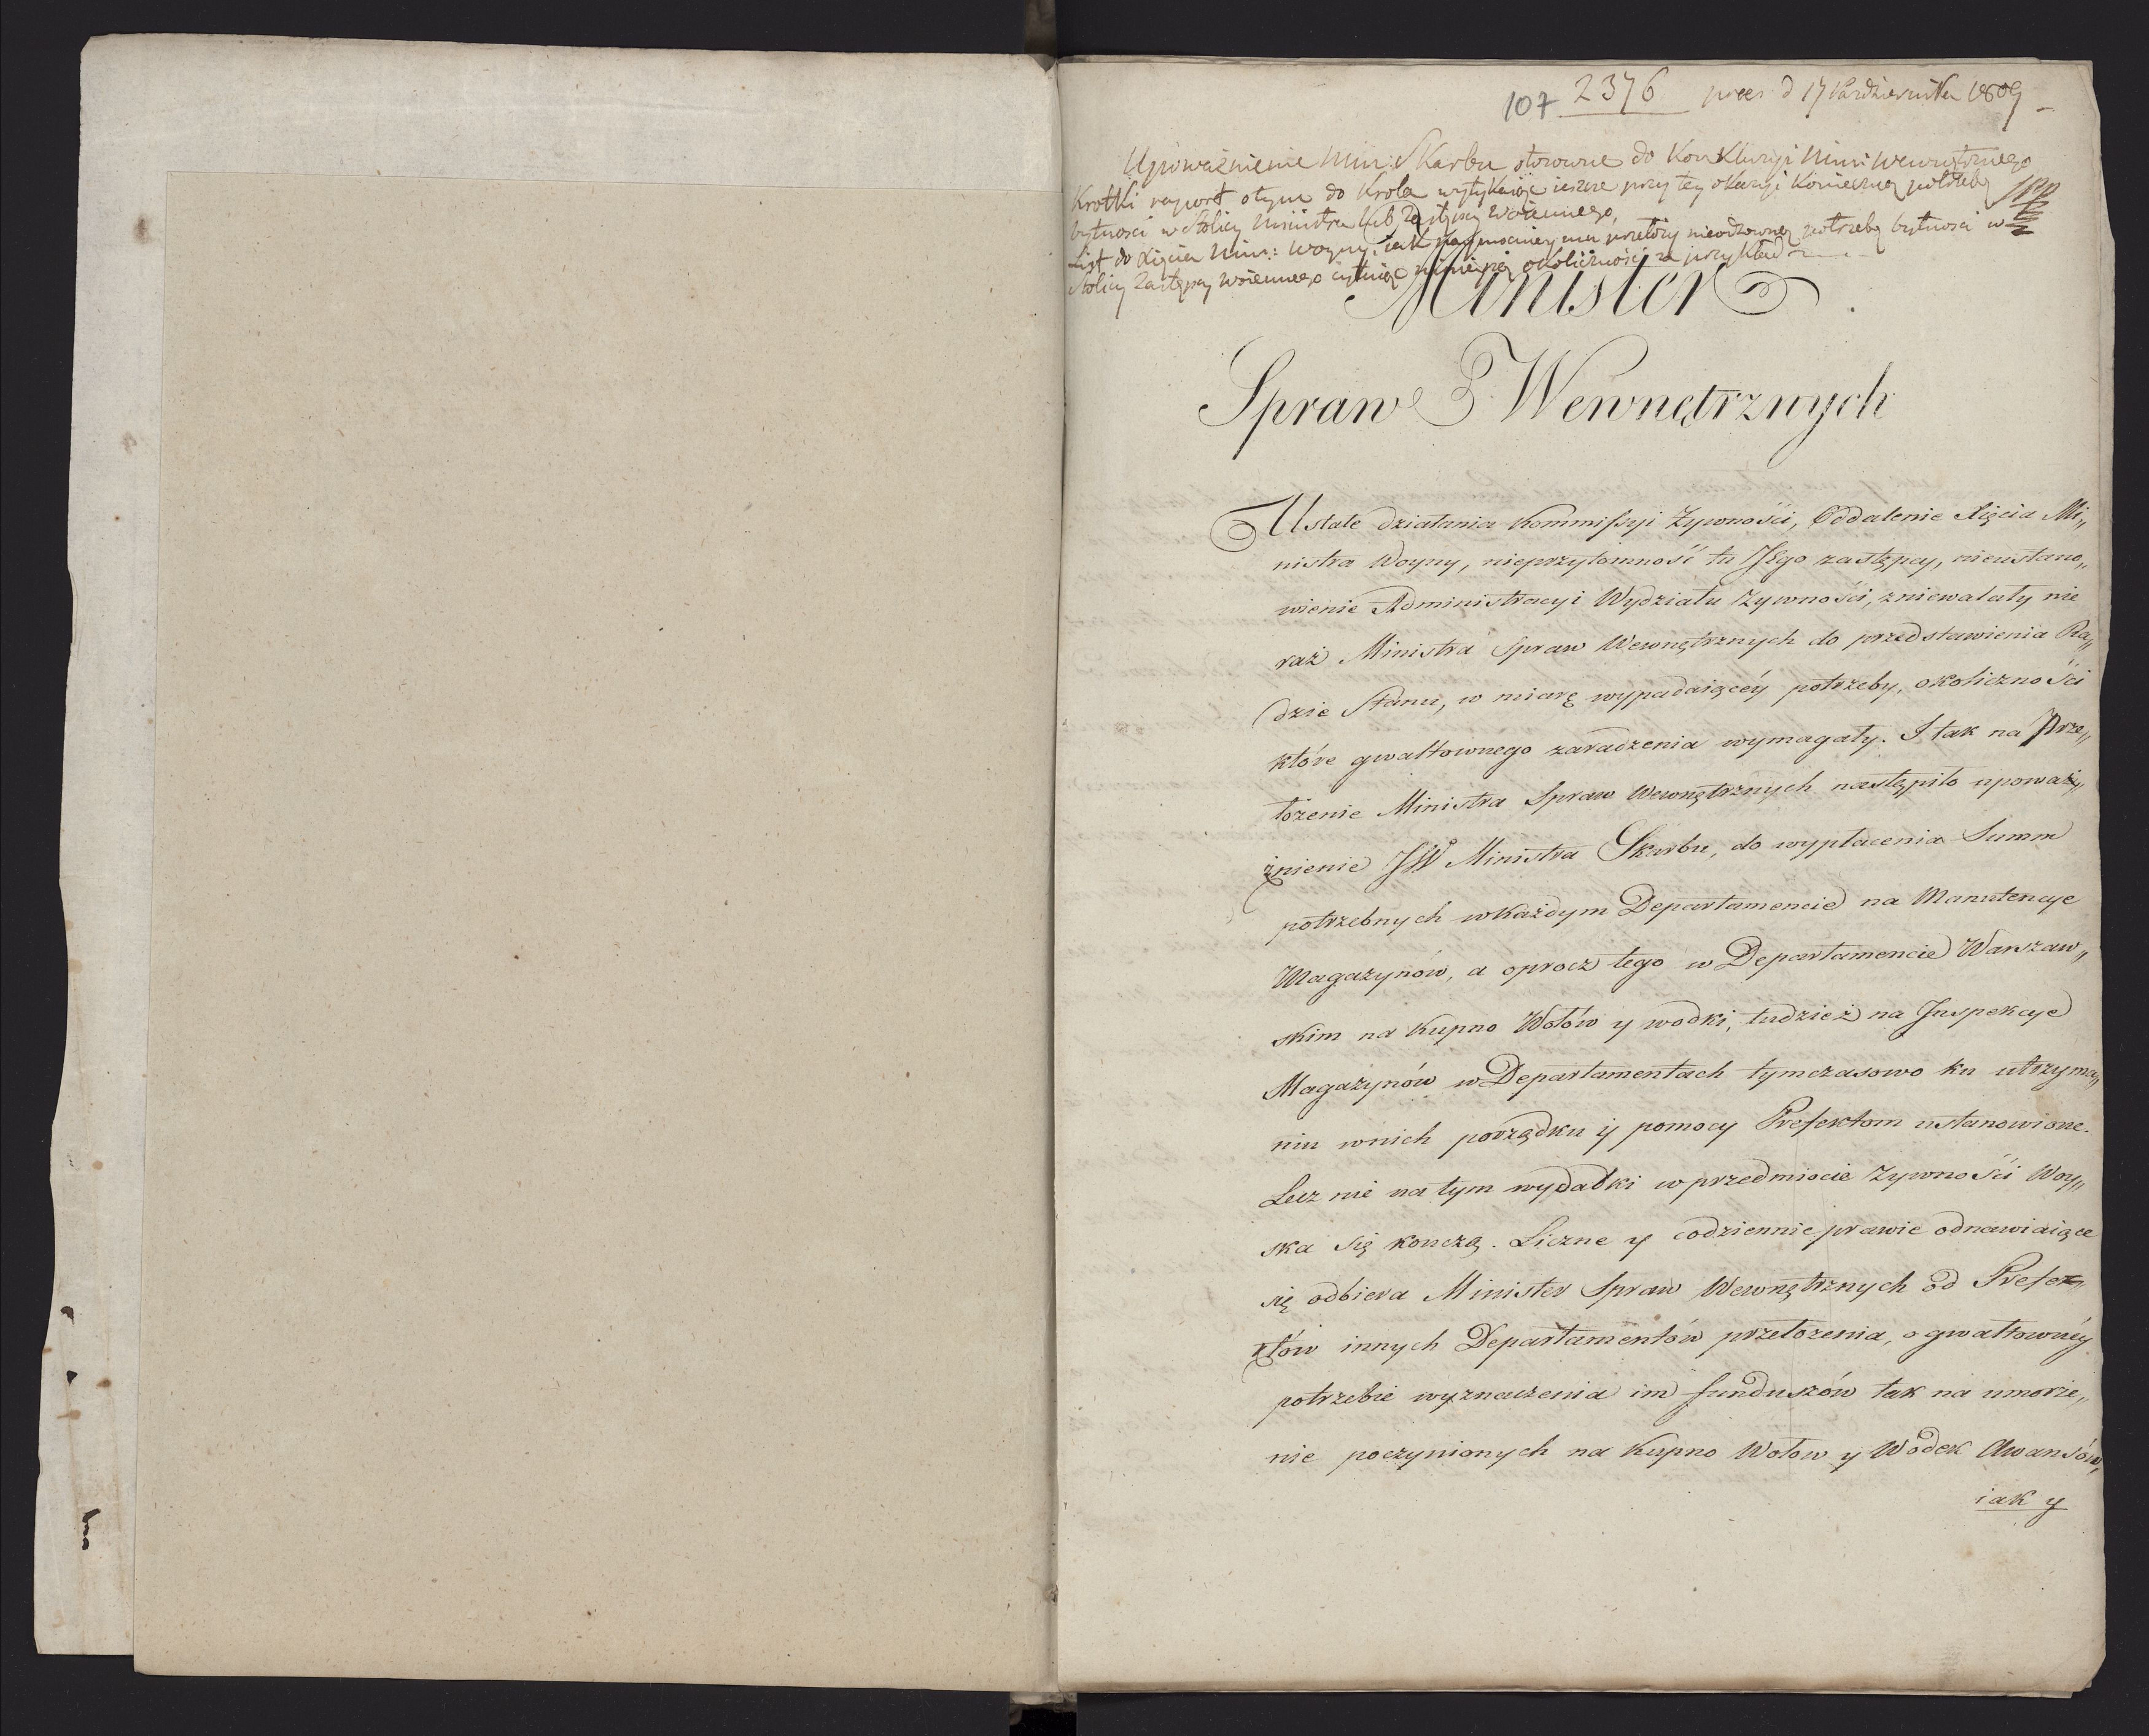 107 2376 prez: d 17 Października 1809
Upoważnienie Min: Skarbu stosowne do Konkluzyi Min: Wewnętrznego
Krotki raport otym do Krola wytykaiąc ieszcze przy tey okazyi konieczną potrzebę
bytnosci w Stolicy Ministra lub Zastępcy Woiennego,
List do Xięcia Min: Woyny, iak naymocniey mu przełoży nieodzowną potrzebę bytnosci w
Stolicy Zastępcy Woiennego cytuiąc ninieyszą okoliczność za przykład
Minister
Spraw Wewnętrznych
Ustałe działania Kommissyi Zywności, Oddalenie Xięcia Mi„
nistra Woyny, nieprzytomność tu JEgo zastępcy, nieustano„
wienie Administracyi Wydziału Zywności, zniewalały nie
raż Ministra Spraw Wewnętrznych do przedstawienia Ra„
dzie Stanu, w miarę wypadaiącéy potrzeby, okoliczności
które gwałtownego zaradzenia wymagały. I tak na Prze„
łożenie Ministra Spraw Wewnętrznych nastąpiło upoważ„
żnienie JW Ministra Skarbu, do wypłacenia Summ
potrzebnych wkażdym Departamencie na Manutencye
Magazynów, a oprocz tego w Departamencie Warszaw„
skim na Kupno Wołów y wodki, tudzież na Inspekcye
Magazynów w Departamentach tymczasowo ku utrzyma„
niu wnich porządku y pomocy Prefektom ustanowione.
Lecz nie natym wydatki w przedmiocie Zywności Woy„
ska się konczą. Liczne y codziennie prawie odnawiaiące
się odbiera Minister Spraw Wewnętrznych od Prefek„
któw innych Departamentów przełożenia, o gwałtownéy
potrzebie wyznaczenia im funduszów tak na umorze„
nie poczynionych na Kupno Wołow y Wódek Awansów,
iak y